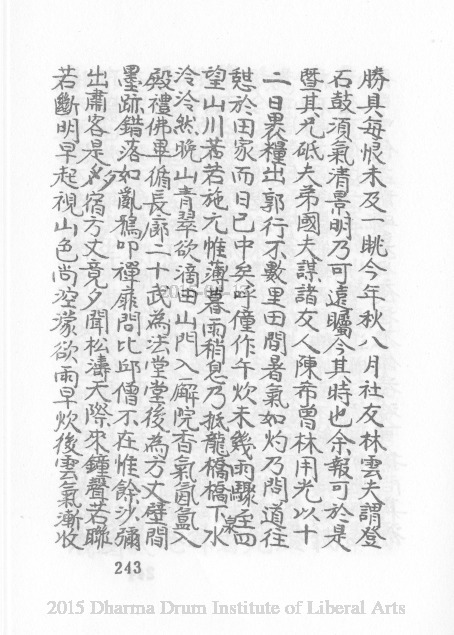 勝具每恨未及一眺今年秋八月社友林雲夫謂登
石鼓須氣清景明乃可遠矚今其時也余報可於是
暨其兄砥夫弟國夫謀諸友人陳希曾林用光以十
二日裹糧出郭行不數里田間暑氣如灼乃問道往
憩於田家而日已中矣呼僮作午炊未幾雨驟至四
望山川若若施元惟薄暮雨稍息乃抵龍橋橋下水
泠泠然晚山青翠欲滴田山門入廨院香氣氤氳入
殿禮佛畢循長廊二十武為法堂堂後為方丈壁間
墨跡錯落如亂鴉叩禪扉問比丘僧不在惟餘沙彌
出肅客是夕宿方丈竟夕聞松濤天際來鐘聲若聯
若斷明早起視山色尚空濛欲雨早炊後雲氣漸收
243
2015 Dharma Drum Institute of Liberal Arts